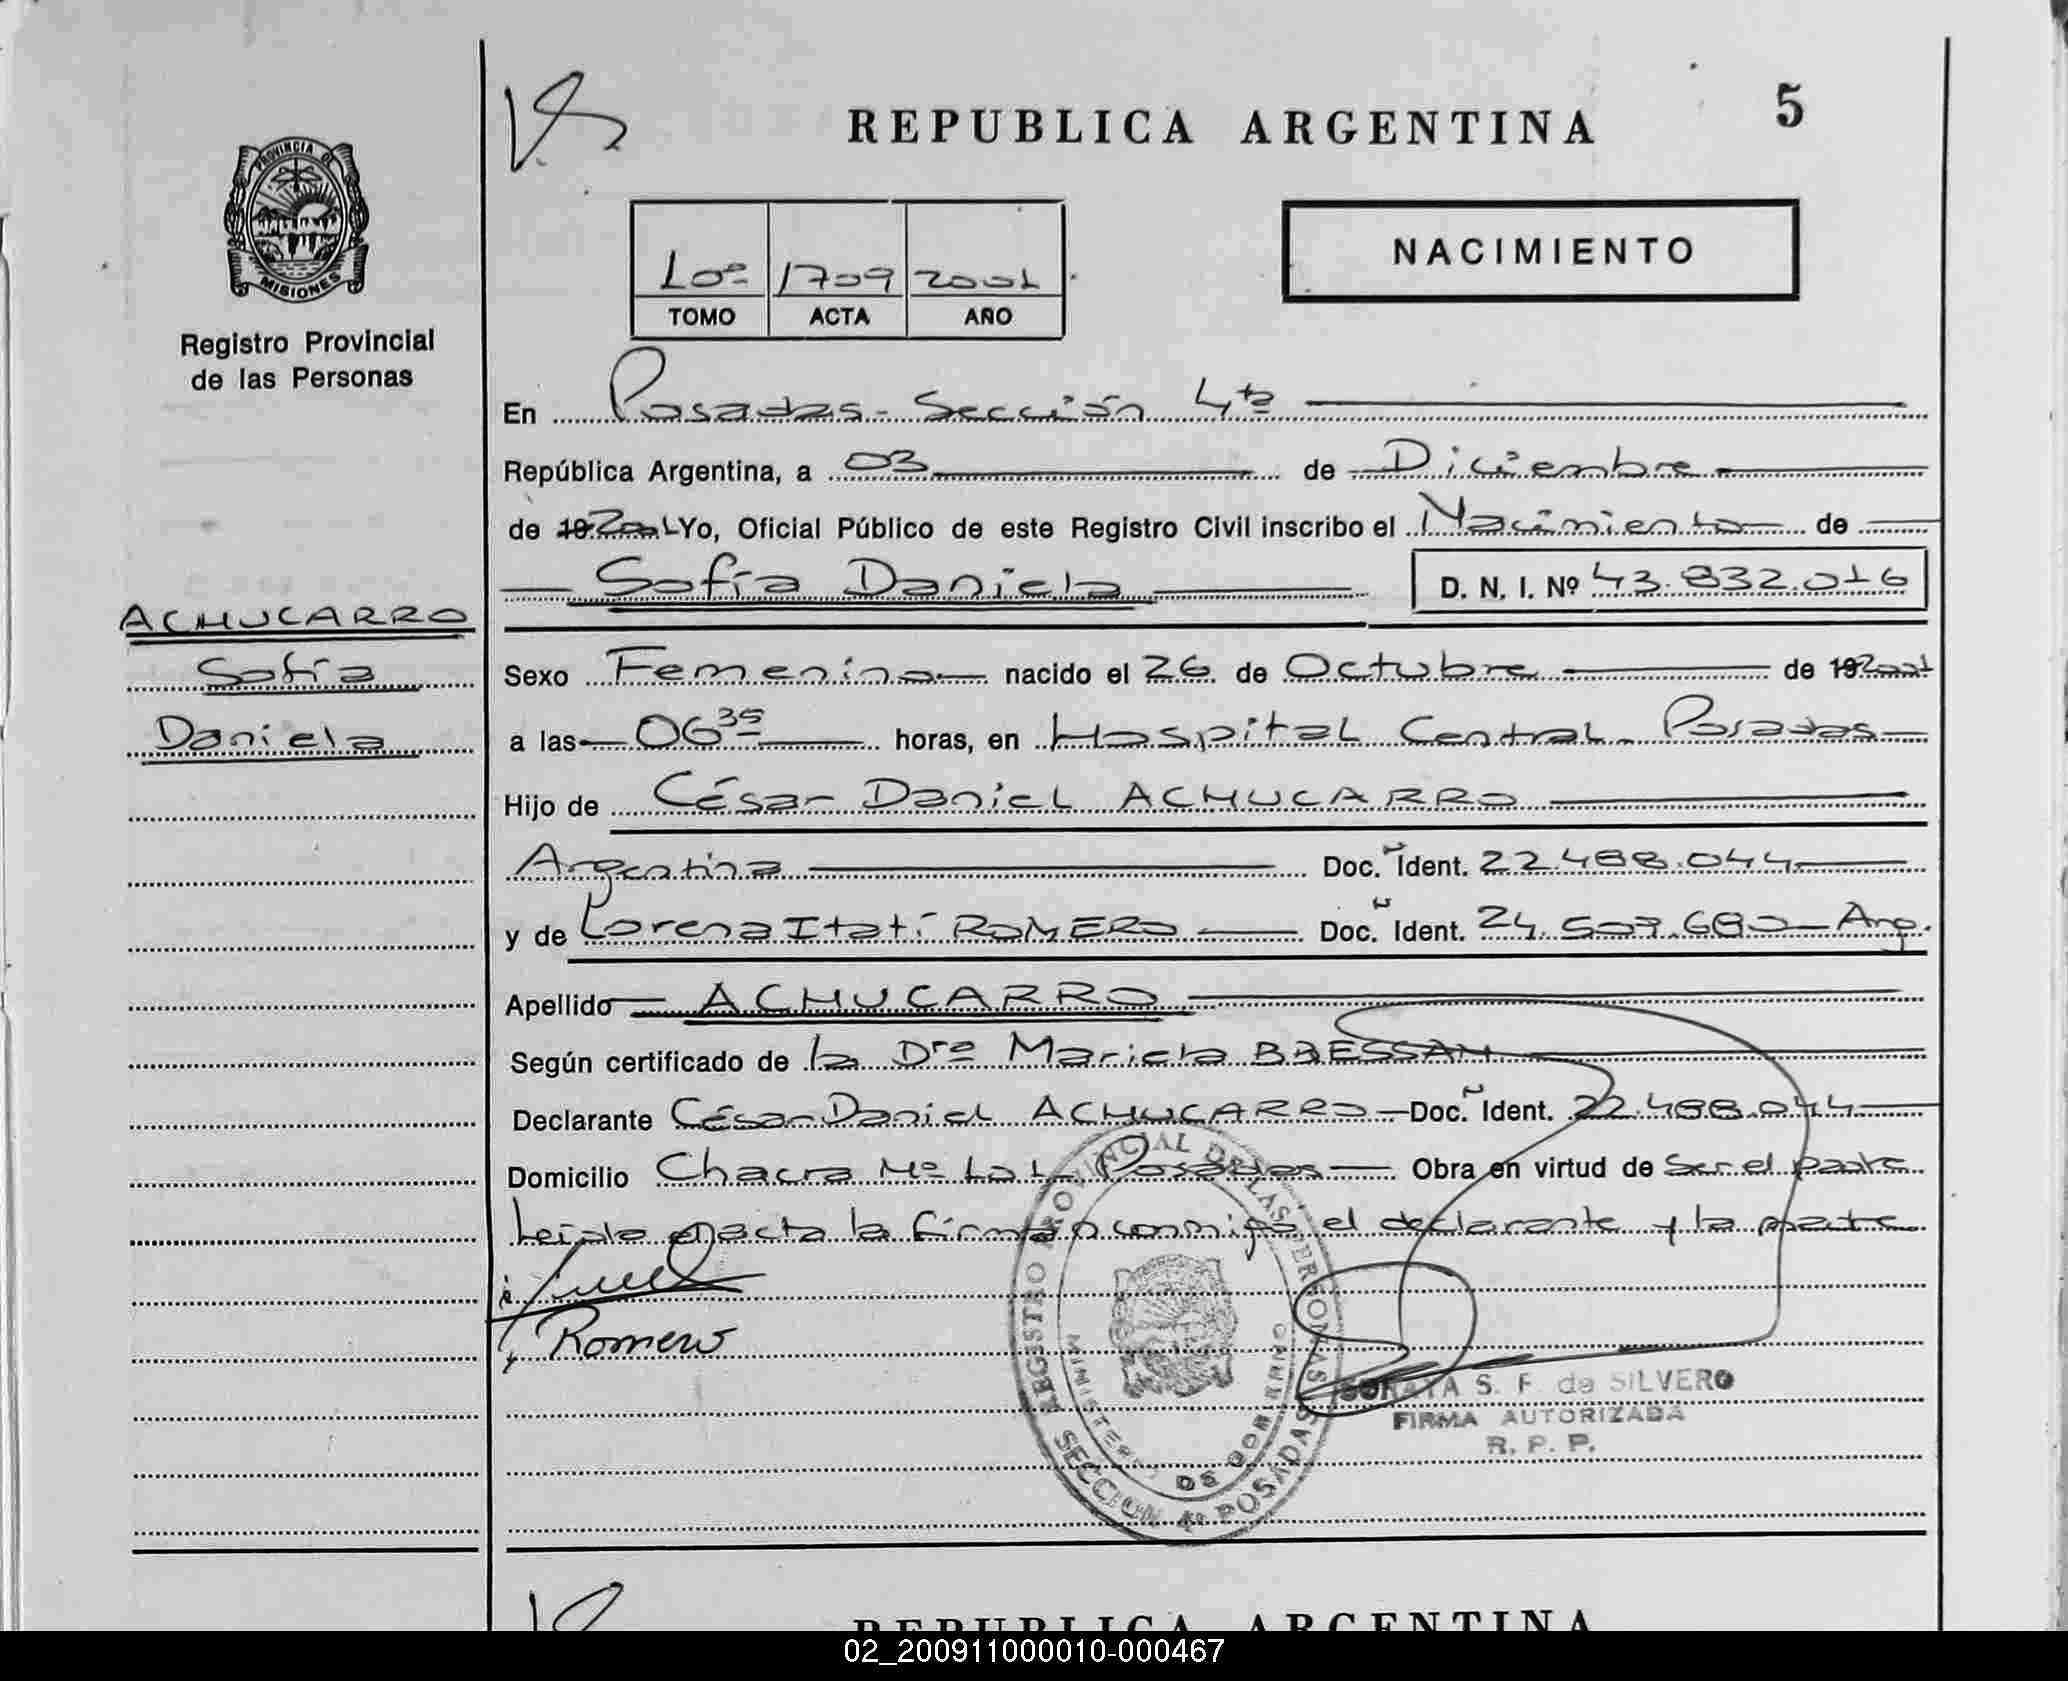 REPUBLICA ARGENTINA
5
PROVINCIA DE
MISIONES
Registro Provincial
de las Personas
10º 1709 2001
TOMO ACTA AÑO
NACIMIENTO
En Posadas - Sección 4ta
República Argentina, a 03 de Diciembre
de 19 2001 Yo, Oficial Público de este Registro Civil inscribo el Nacimiento de
Sofía Daniela D. N. I. Nº 43.832.016
ACHUCARRO
Sofía
Daniela
Sexo Femenino nacido el 26 de Octubre de 19 2001
a las 06 35 horas, en Hospital Central - Posadas
Hijo de César Daniel ACHUCARRO
Argentina Doc. Ident. 22.488.044
y de Lorena Itatí ROMERO Doc. Ident. 24.507.680 - Arg.
Apellido ACHUCARRO
Según certificado de la Dra Mariela BRESSAN
Declarante César Daniel ACHUCARRO Doc. Ident. 22.488.044
Domicilio Chacra Nº 101 Posadas Obra en virtud de Ser el padre
Leída el acta la firman conmigo el declarante y la madre
Romero
REGISTRO PROVINCIAL DE LAS PERSONAS
MINISTERIO DE GOBIERNO
SECCION 4º POSADAS
SORAYA S. F. de SILVERO
FIRMA AUTORIZADA
R. P. P.
REPUBLICA ARGENTINA
02_200911000010-000467